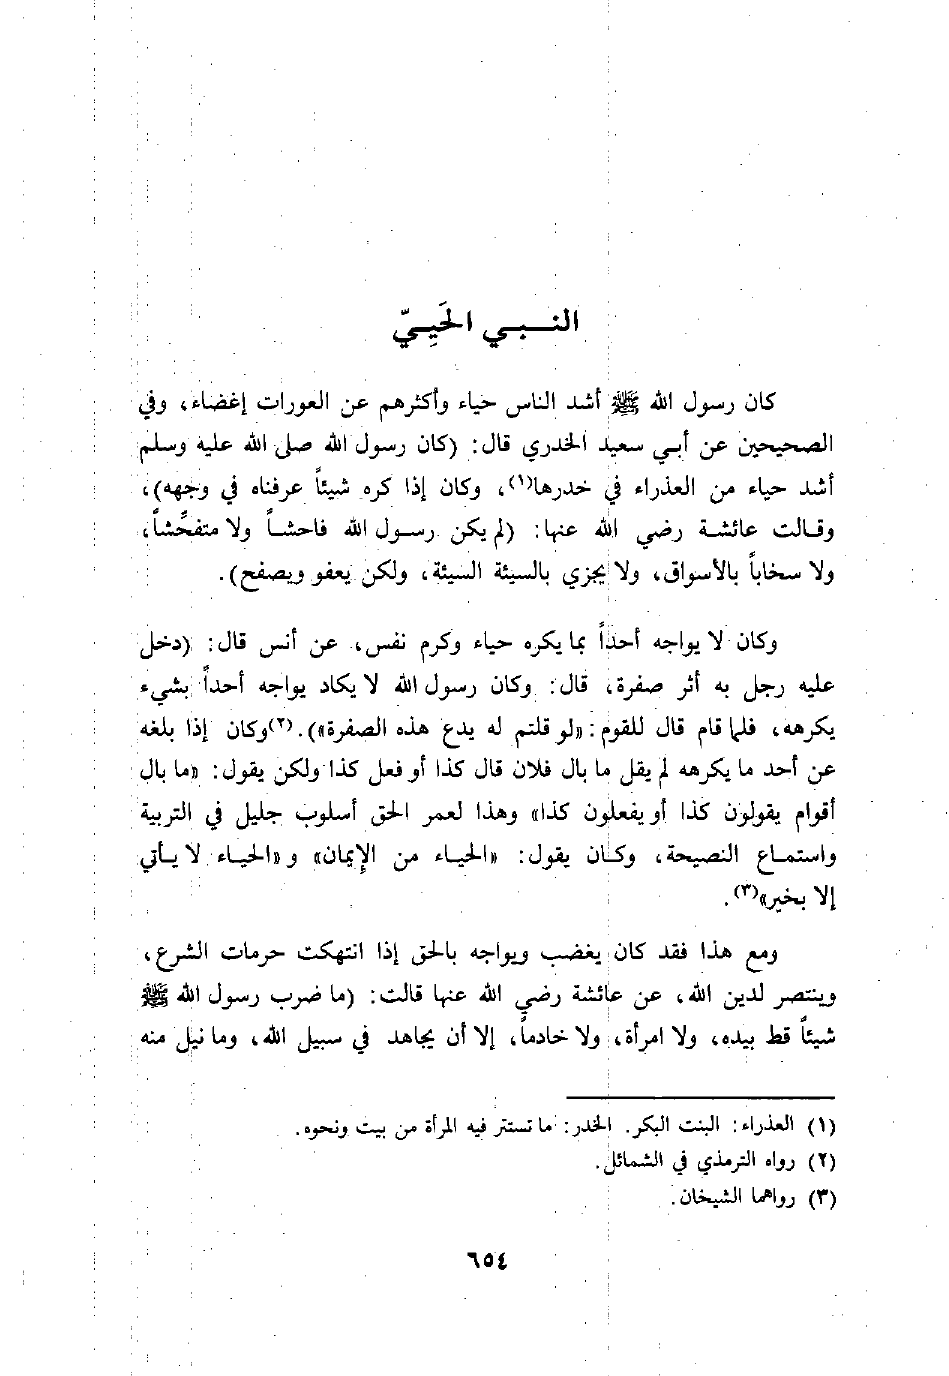 النبي الحَيِيّ
كان رسول الله ﷺ أشد الناس حياء وأكثرهم عن العورات إغضاء، وفي
الصحيحين عن أبي سعيد الخدري قال: (كان رسول الله صلى الله عليه وسلم
أشد حياء من العذراء في خدرها(١)، وكان إذا كره شيئاً عرفناه في وجهه)،
وقالت عائشة رضي الله عنها: (لم يكن رسول الله فاحشاً ولا متفحّشاً،
ولا سخاباً بالأسواق، ولا يجزي بالسيئة السيئة، ولكن يعفو ويصفح).
وكان لا يواجه أحداً بما يكره حياء وكرم نفس، عن أنس قال: (دخل
عليه رجل به أثر صفرة، قال: وكان رسول الله لا يكاد يواجه أحداً بشيء
يكرهه، فلما قام قال للقوم: «لو قلتم له يدع هذه الصفرة»).(٢)وكان إذا بلغه
عن أحد ما يكرهه لم يقل ما بال فلان قال كذا أو فعل كذا ولكن يقول: «ما بال
أقوام يقولون كذا أو يفعلون كذا» وهذا لعمر الحق أسلوب جليل في التربية
واستماع النصيحة، وكان يقول: «الحياء من الإيمان» و«الحياء لا يأتي
إلا بخير»(٣).
ومع هذا فقد كان يغضب ويواجه بالحق إذا انتهكت حرمات الشرع،
وينتصر لدين الله، عن عائشة رضي الله عنها قالت: (ما ضرب رسول الله ﷺ
شيئاً قط بيده، ولا امرأة، ولا خادماً، إلا أن يجاهد في سبيل الله، وما نيل منه
(١) العذراء: البنت البكر. الخدر: ما تستتر فيه المرأة من بيت ونحوه.
(٢) رواه الترمذي في الشمائل.
(٣) رواهما الشيخان.
٦٥٤